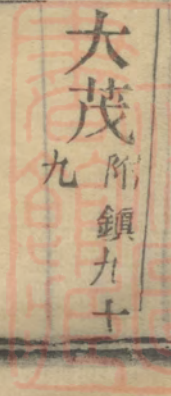 大茂
附鎮九十
九